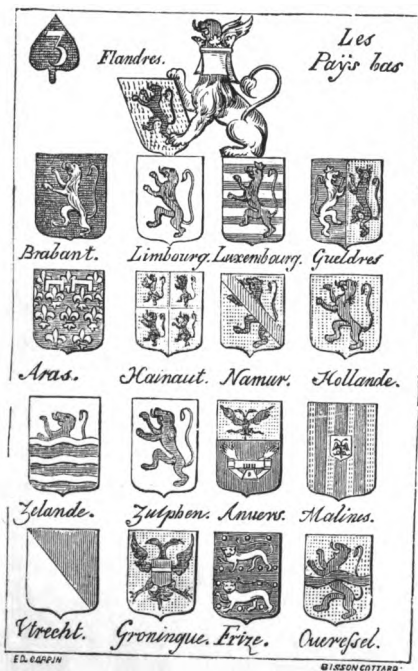 3
Les
Flandres.
Paÿs bas
Brabant. Limbourg. Luxembourg. Gueldres
Aras. Hainaut. Namur. Hollande.
Zelande. Zutphen. Anuers. Malines.
Vtrecht. Groningue. Frize. Oueressel.
ED. COPPIN
BISSON COTTARD.